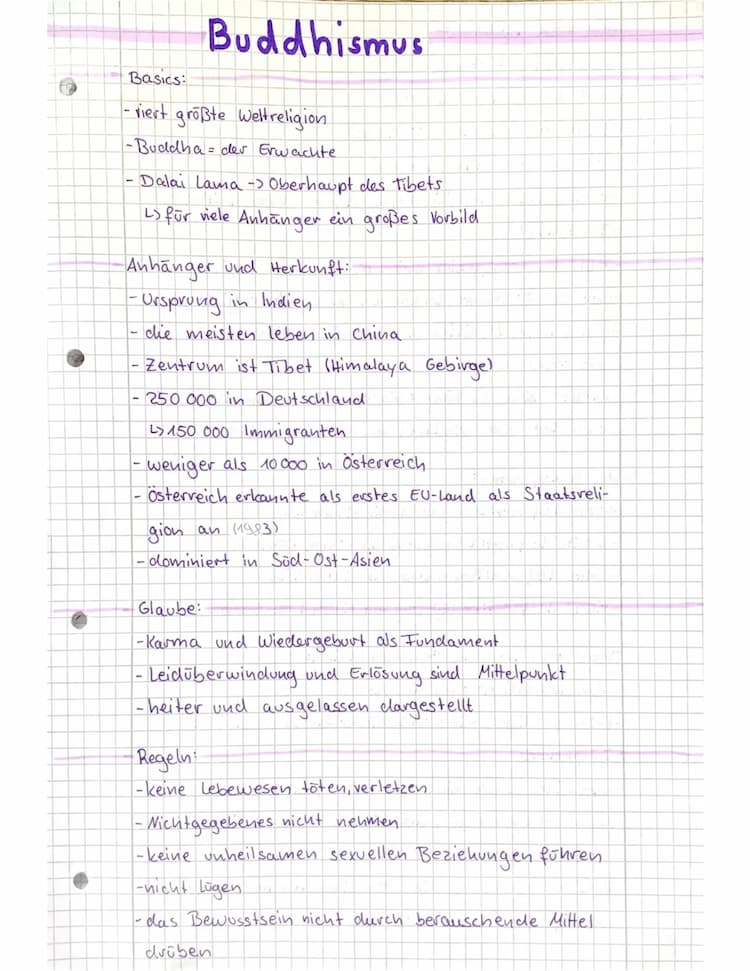 Buddhismus
Basics:
- viert größte Weltreligion
- Buddha = der Erwachte
- Dalai Lama -> Oberhaupt des Tibets
↳ für viele Anhänger ein großes Vorbild
Anhänger und Herkunft:
- Ursprung in Indien
- die meisten leben in China
- Zentrum ist Tibet (Himalaya Gebirge)
- 250 000 in Deutschland
↳ 150 000 Immigranten
- weniger als 10 000 in Österreich
- Österreich erkannte als erstes EU-Land als Staatsreli-
gion an (1983)
- dominiert in Süd-Ost-Asien
Glaube:
- Karma und Wiedergeburt als Fundament
- Leidüberwindung und Erlösung sind Mittelpunkt
- heiter und ausgelassen dargestellt
Regeln:
- keine Lebewesen töten, verletzen
- Nichtgegebenes nicht nehmen
- keine unheilsamen sexuellen Beziehungen führen
- nicht lügen
- das Bewusstsein nicht durch berauschende Mittel
drüben